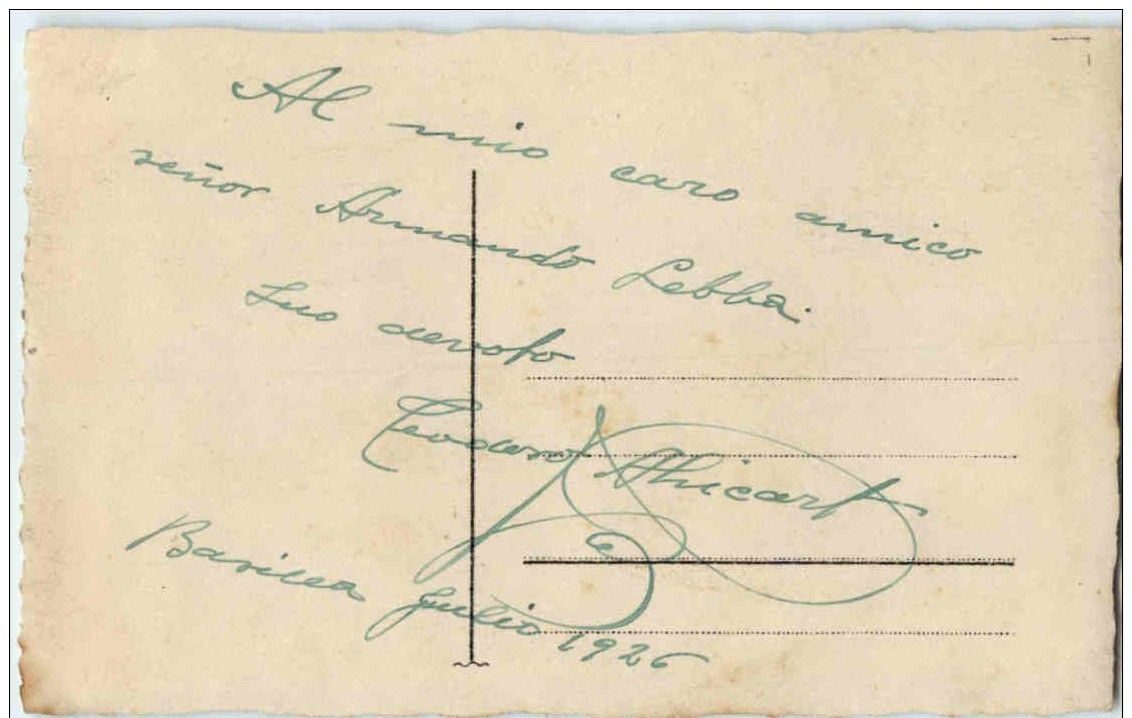 Al mio caro amico
señor Armando Lebba.
Suo devoto
Teodoro
Basilea Julio 1926